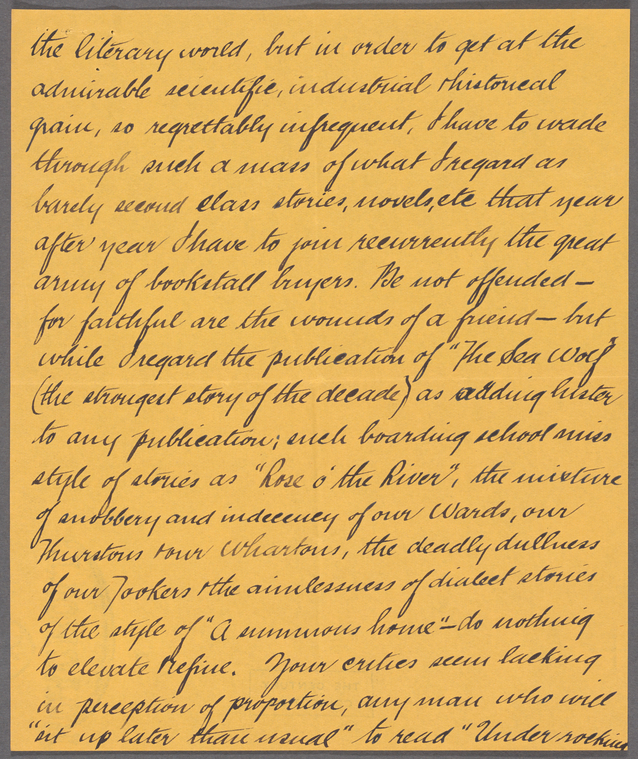 the literary world, but in order to get at the
admirable scientific, industrial & historical
grain, so regrettably infrequent, I have to wade
through such a mass of what I regard as
barely second class stories, novels, etc that year
after year I have to join recurrently the great
army of bookstall buyers. Be not offended —
for faithful are the wounds of a friend — but
while I regard the publication of "The Sea Wolf"
(the strongest story of the decade) as adding luster
to any publication; such boarding school miss
style of stories as "Rose o' the River", the mixture
of snobbery and indecency of our Wards, our
Thurstons & our Whartons, the deadly dullness
of our Tookers & the aimlessness of dialect stories
of the style of "A summous home" — do nothing
to elevate & refine. Your critics seem lacking
in perception of proportion, any man who will
"sit up later than usual" to read "Under rocking